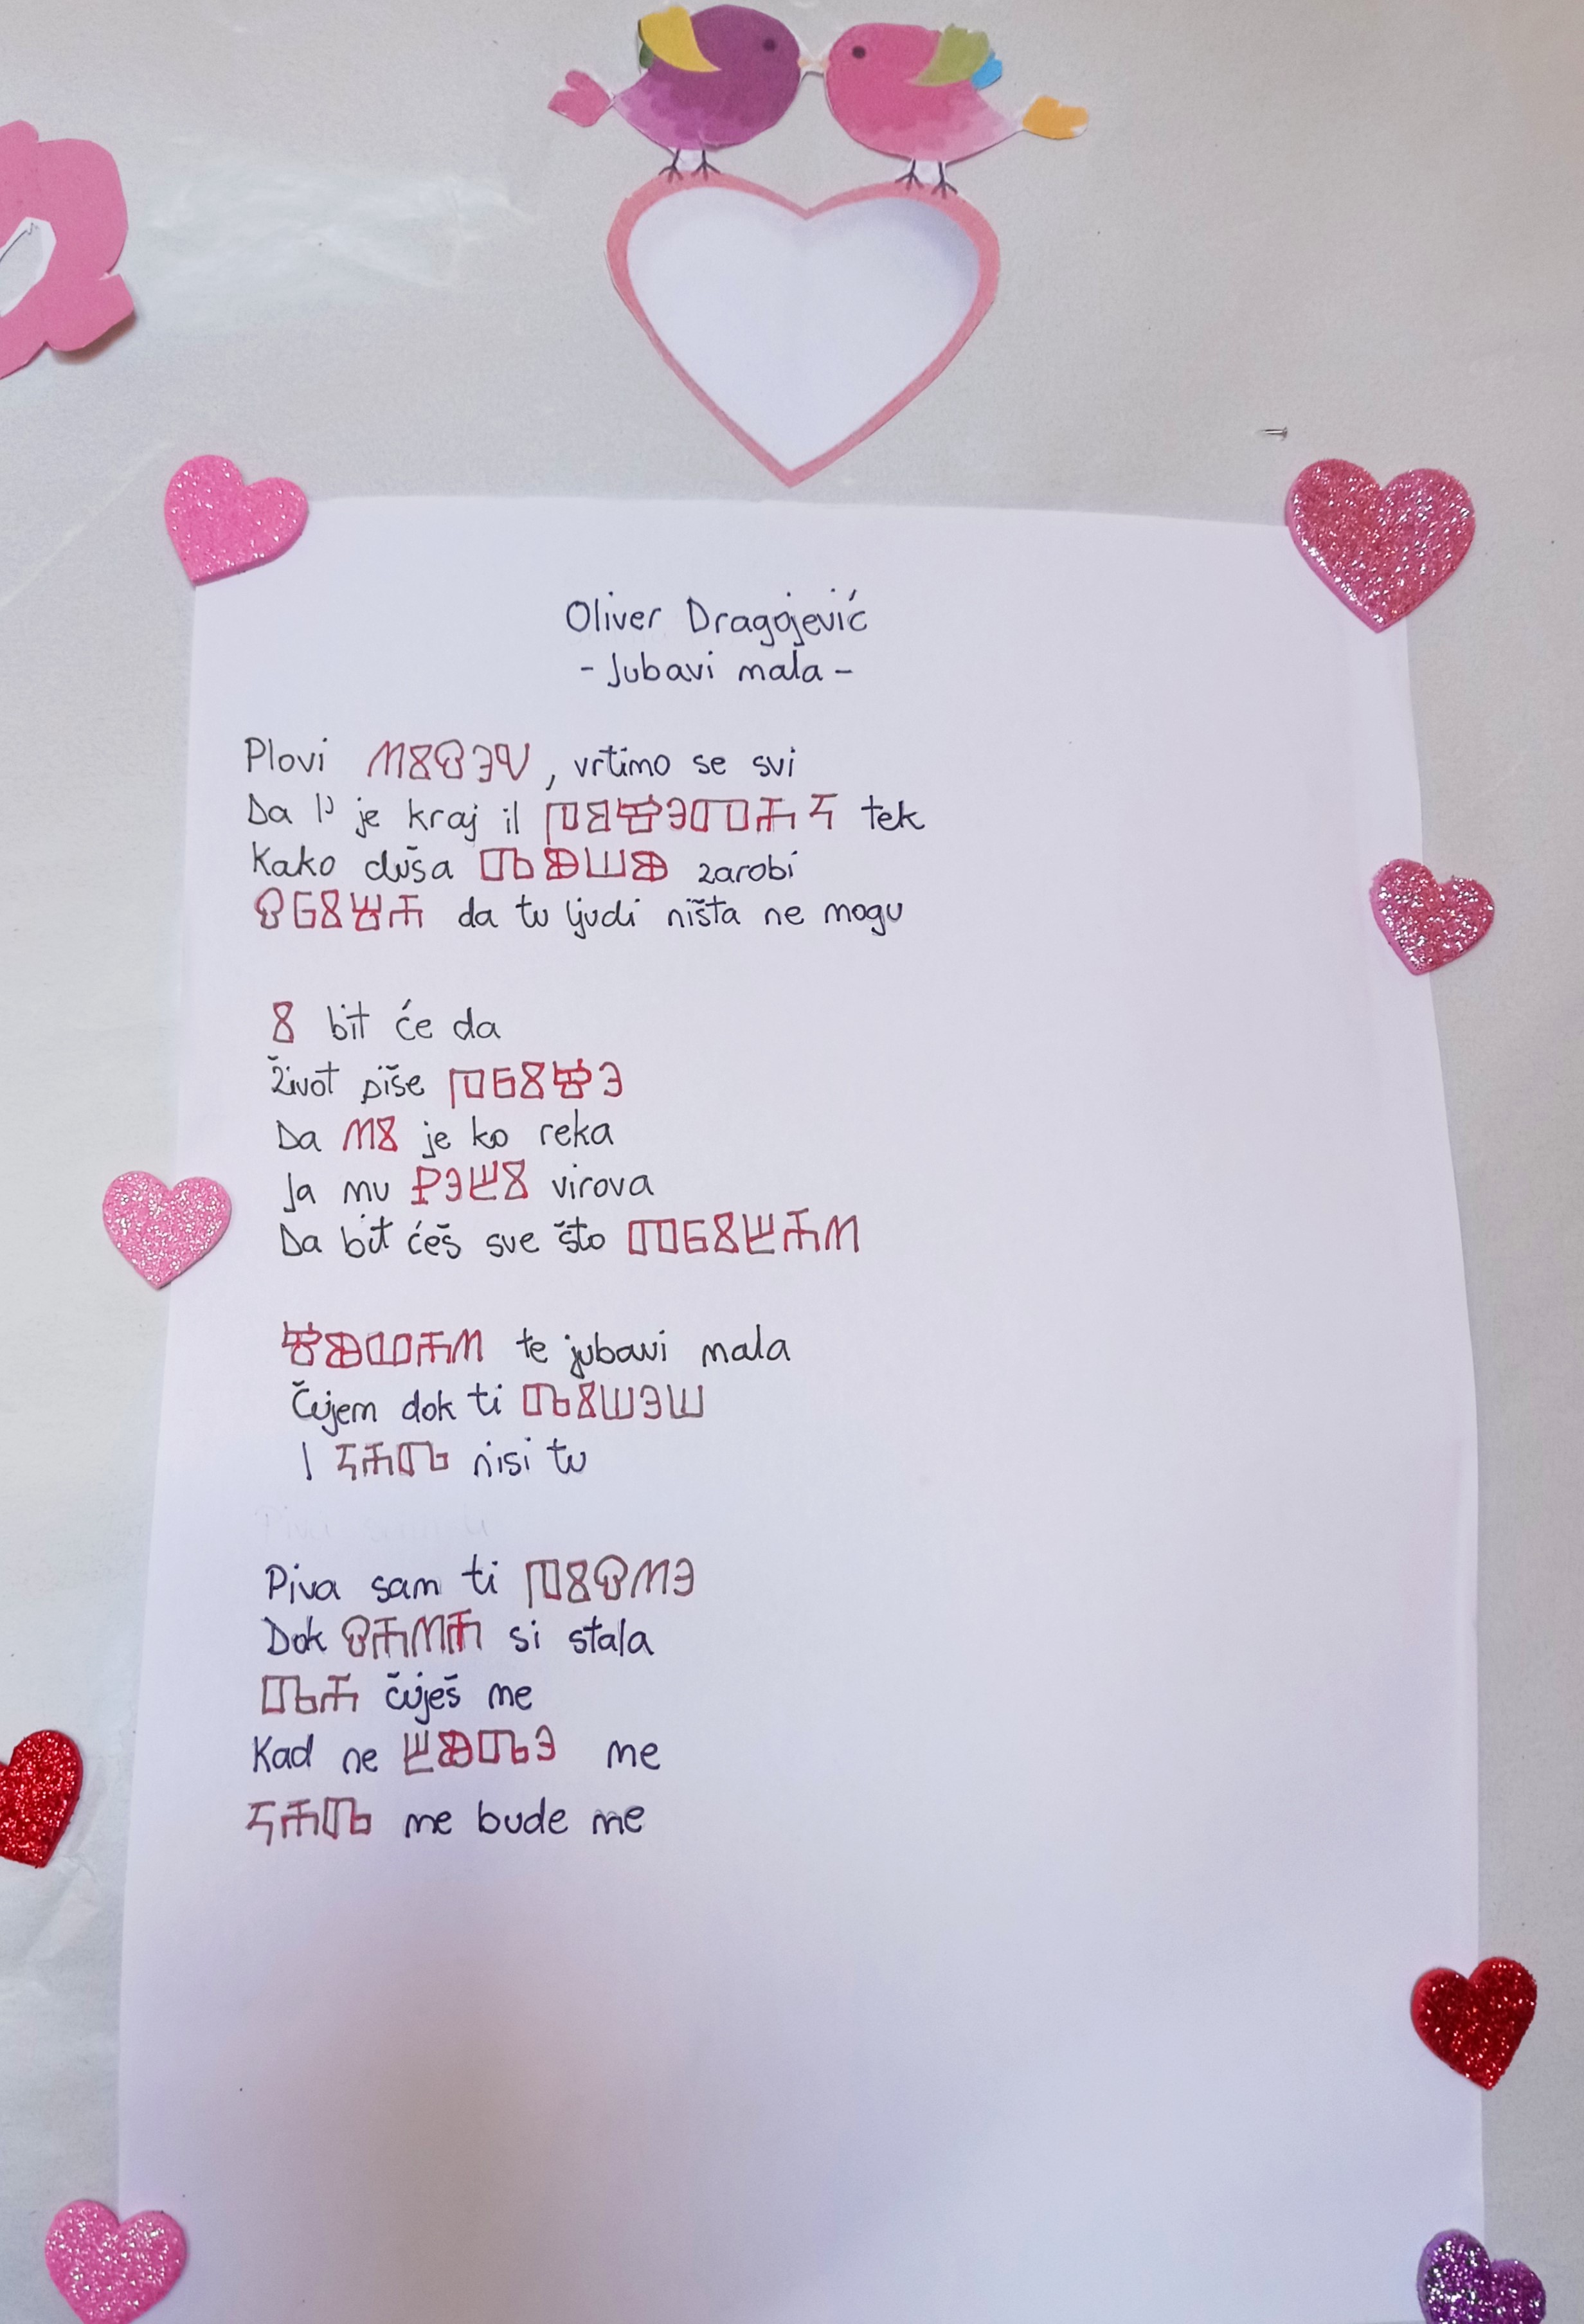 Oliver Dragojević
- Jubavi mala -
Plovi ⰿⰻⱄⰵⱌ, vrtimo se svi
Da l' je kraj il ⱂⱁⱍⰵⱅⰰⰽ tek
Kako duša ⰴⱆⱎⱆ zarobi
ⱄⱃⰻⱋⰰ da tu ljudi ništa ne mogu
ⰻ bit će da
Život piše ⱂⱃⰻⱍⰵ
Da ⰿⰻ je ko reka
Ja mu ⱀⰵⰱⰻ virova
Da bit ćeš sve što ⱅⱃⰻⰱⰰⰿ
ⱍⱆⰲⰰⰿ te jubavi mala
Čujem dok ti ⰴⰻⱎⰵⱎ
I ⰽⰰⰴ nisi tu
Piva sam ti ⱂⰻⱄⰿⰵ
Dok ⱄⰰⰿⰰ si stala
ⰴⰰ čuješ me
Kad ne ⰱⱆⰴⰵ me
ⰽⰰⰴ me bude me